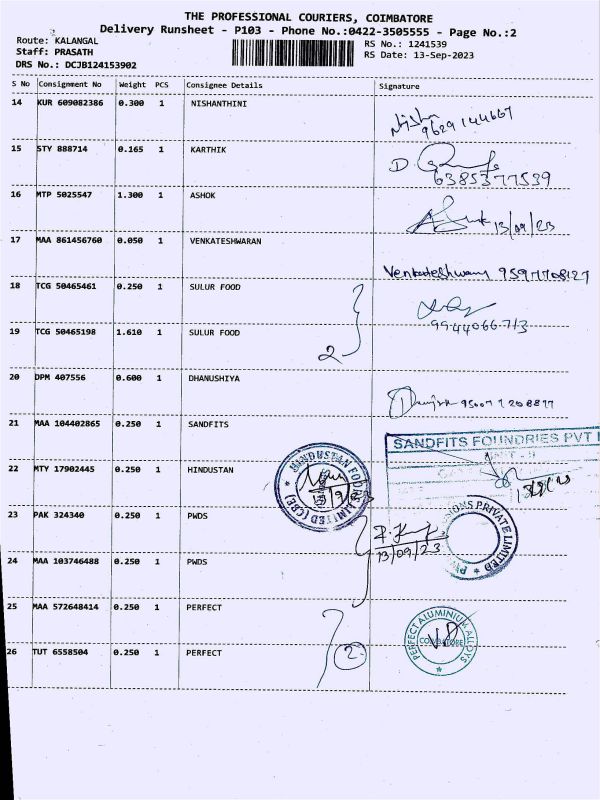 THE PROFESSIONAL COURIERS, COIMBATORE
Delivery Runsheet - P103 - Phone No.:0422-3505555 - Page No.:2
Route: KALANGAL
RS No.: 1241539
Staff: PRASATH
RS Date: 13-Sep-2023
DRS No.: DCJB124153902
S No Consignment No Weight PCS Consignee Details Signature
14 KUR 609082386 0.300 1 NISHANTHINI
Nisha
9629144667
15 STY 888714 0.165 1 KARTHIK
6385377539
16 MTP 5025547 1.300 1 ASHOK
13/09/23
17 MAA 861456760 0.050 1 VENKATESHWARAN
Venkateshwaran 9597708127
18 TCG 50465461 0.250 1 SULUR FOOD
9944066713
19 TCG 50465198 1.610 1 SULUR FOOD
2
20 DPM 407556 0.600 1 DHANUSHIYA
21 MAA 104402865 0.250 1 SANDFITS
SANDFITS FOUNDRIES PVT
22 MTY 17902445 0.250 1 HINDUSTAN
HINDUSTAN FOODS LIMITED (CBE)
23 PAK 324340 0.250 1 PWDS
13/09/23
PRIVATE LIMITED
24 MAA 103746488 0.250 1 PWDS
25 MAA 572648414 0.250 1 PERFECT
PERFECT ALUMINIUM ALLOYS
COIMBATORE
26 TUT 6558504 0.250 1 PERFECT
2